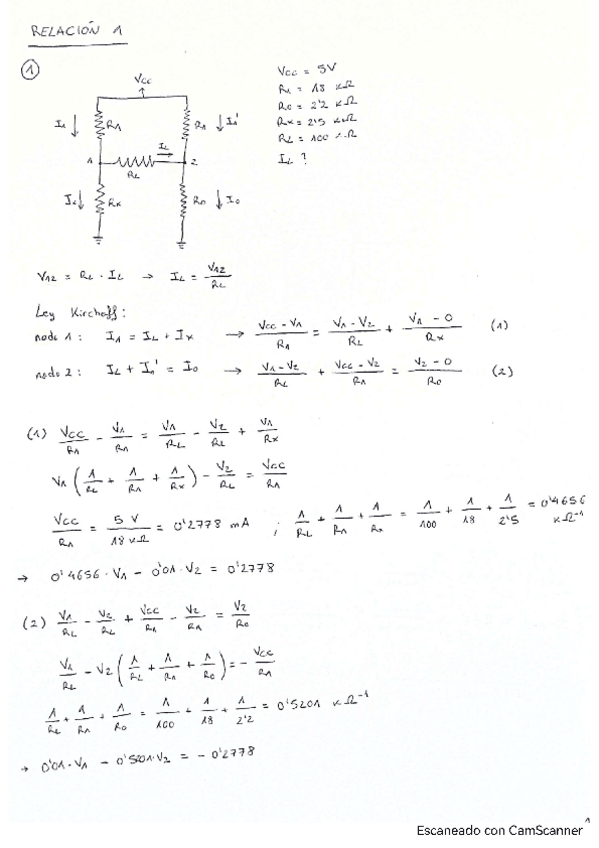 RELACIÓN 1
1
Vcc
I1 ↓ R1
R1 ↓ I1'
IL →
1
2
RL
Ix↓ Rx
R0 ↓ I0
Vcc = 5V
R1 = 18 kΩ
R0 = 2'2 kΩ
Rx = 2'5 kΩ
RL = 100 kΩ
IL ?
V12 = RL · IL → IL = V12/RL
Ley Kirchoff:
nodo 1: I1 = IL + Ix → (Vcc - V1)/R1 = (V1 - V2)/RL + (V1 - 0)/Rx (1)
nodo 2: IL + I1' = I0 → (V1 - V2)/RL + (Vcc - V2)/R1 = (V2 - 0)/R0 (2)
(1) Vcc/R1 - V1/R1 = V1/RL - V2/RL + V1/Rx
V1 (1/RL + 1/R1 + 1/Rx) - V2/RL = Vcc/R1
Vcc/R1 = 5 V/18 kΩ = 0'2778 mA ; 1/RL + 1/R1 + 1/R0 = 1/100 + 1/18 + 1/2'5 = 0'4656 kΩ⁻¹
→ 0'4656 · V1 - 0'01 · V2 = 0'2778
(2) V1/RL - V2/RL + Vcc/R1 - V2/R1 = V2/R0
V1/RL - V2 (1/RL + 1/R1 + 1/R0) = - Vcc/R1
1/RL + 1/R1 + 1/R0 = 1/100 + 1/18 + 1/2'2 = 0'5201 kΩ⁻¹
→ 0'01 · V1 - 0'5201 · V2 = - 0'2778
1
Escaneado con CamScanner